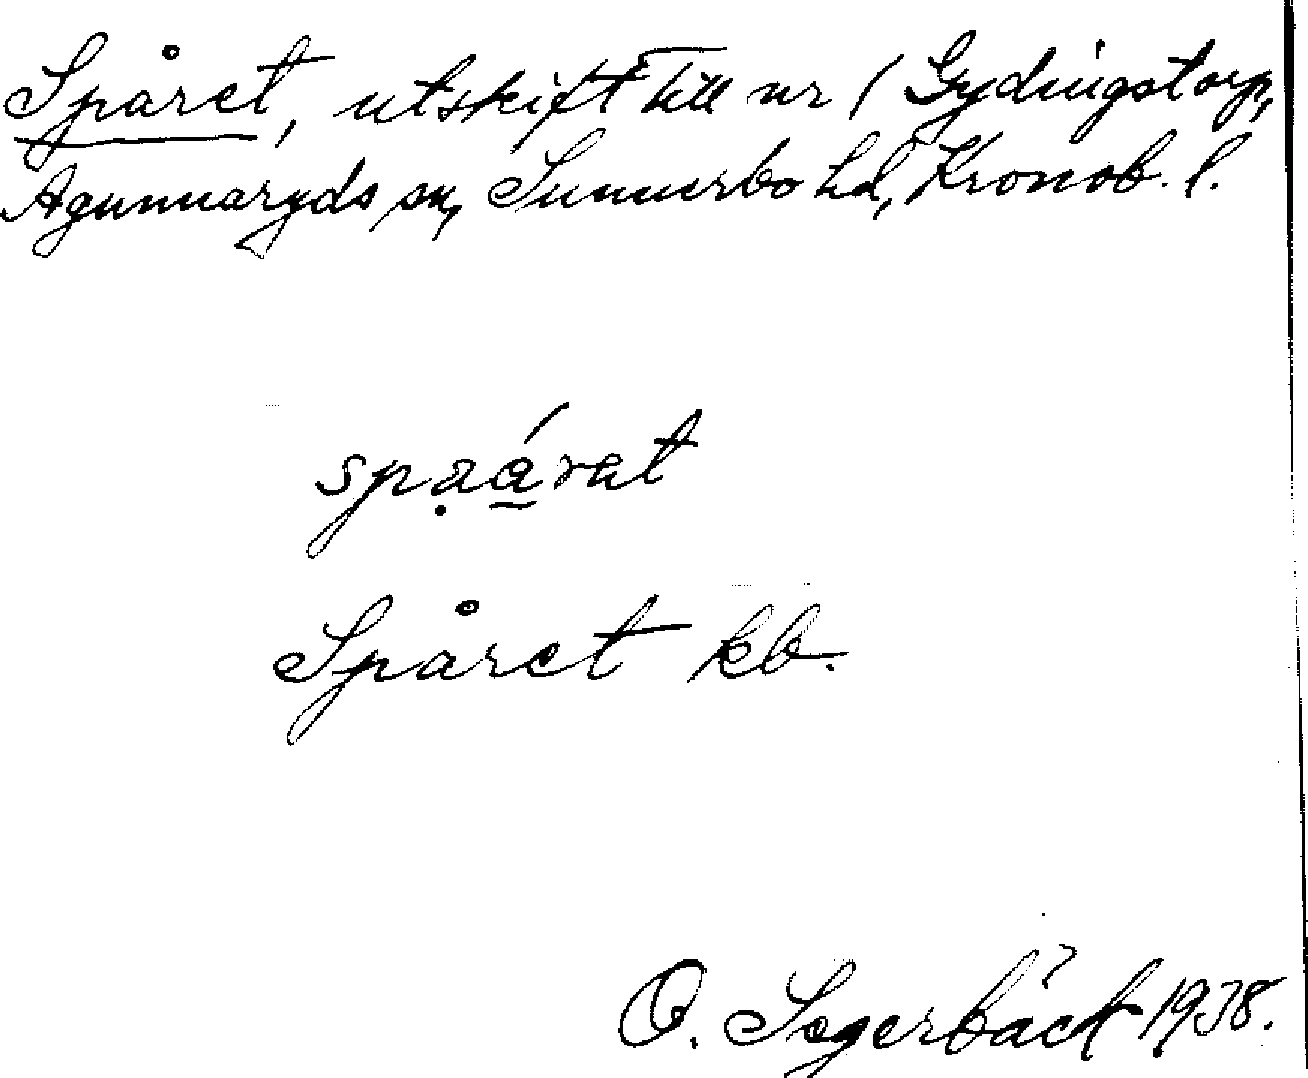 Spåret, utskift till nr 1 Gydingstorp,
Agunnaryds sn, Sunnerbo hd, Kronob. l.
spạá̲rat
Spåret kb.
O. Segerbäck 1938.